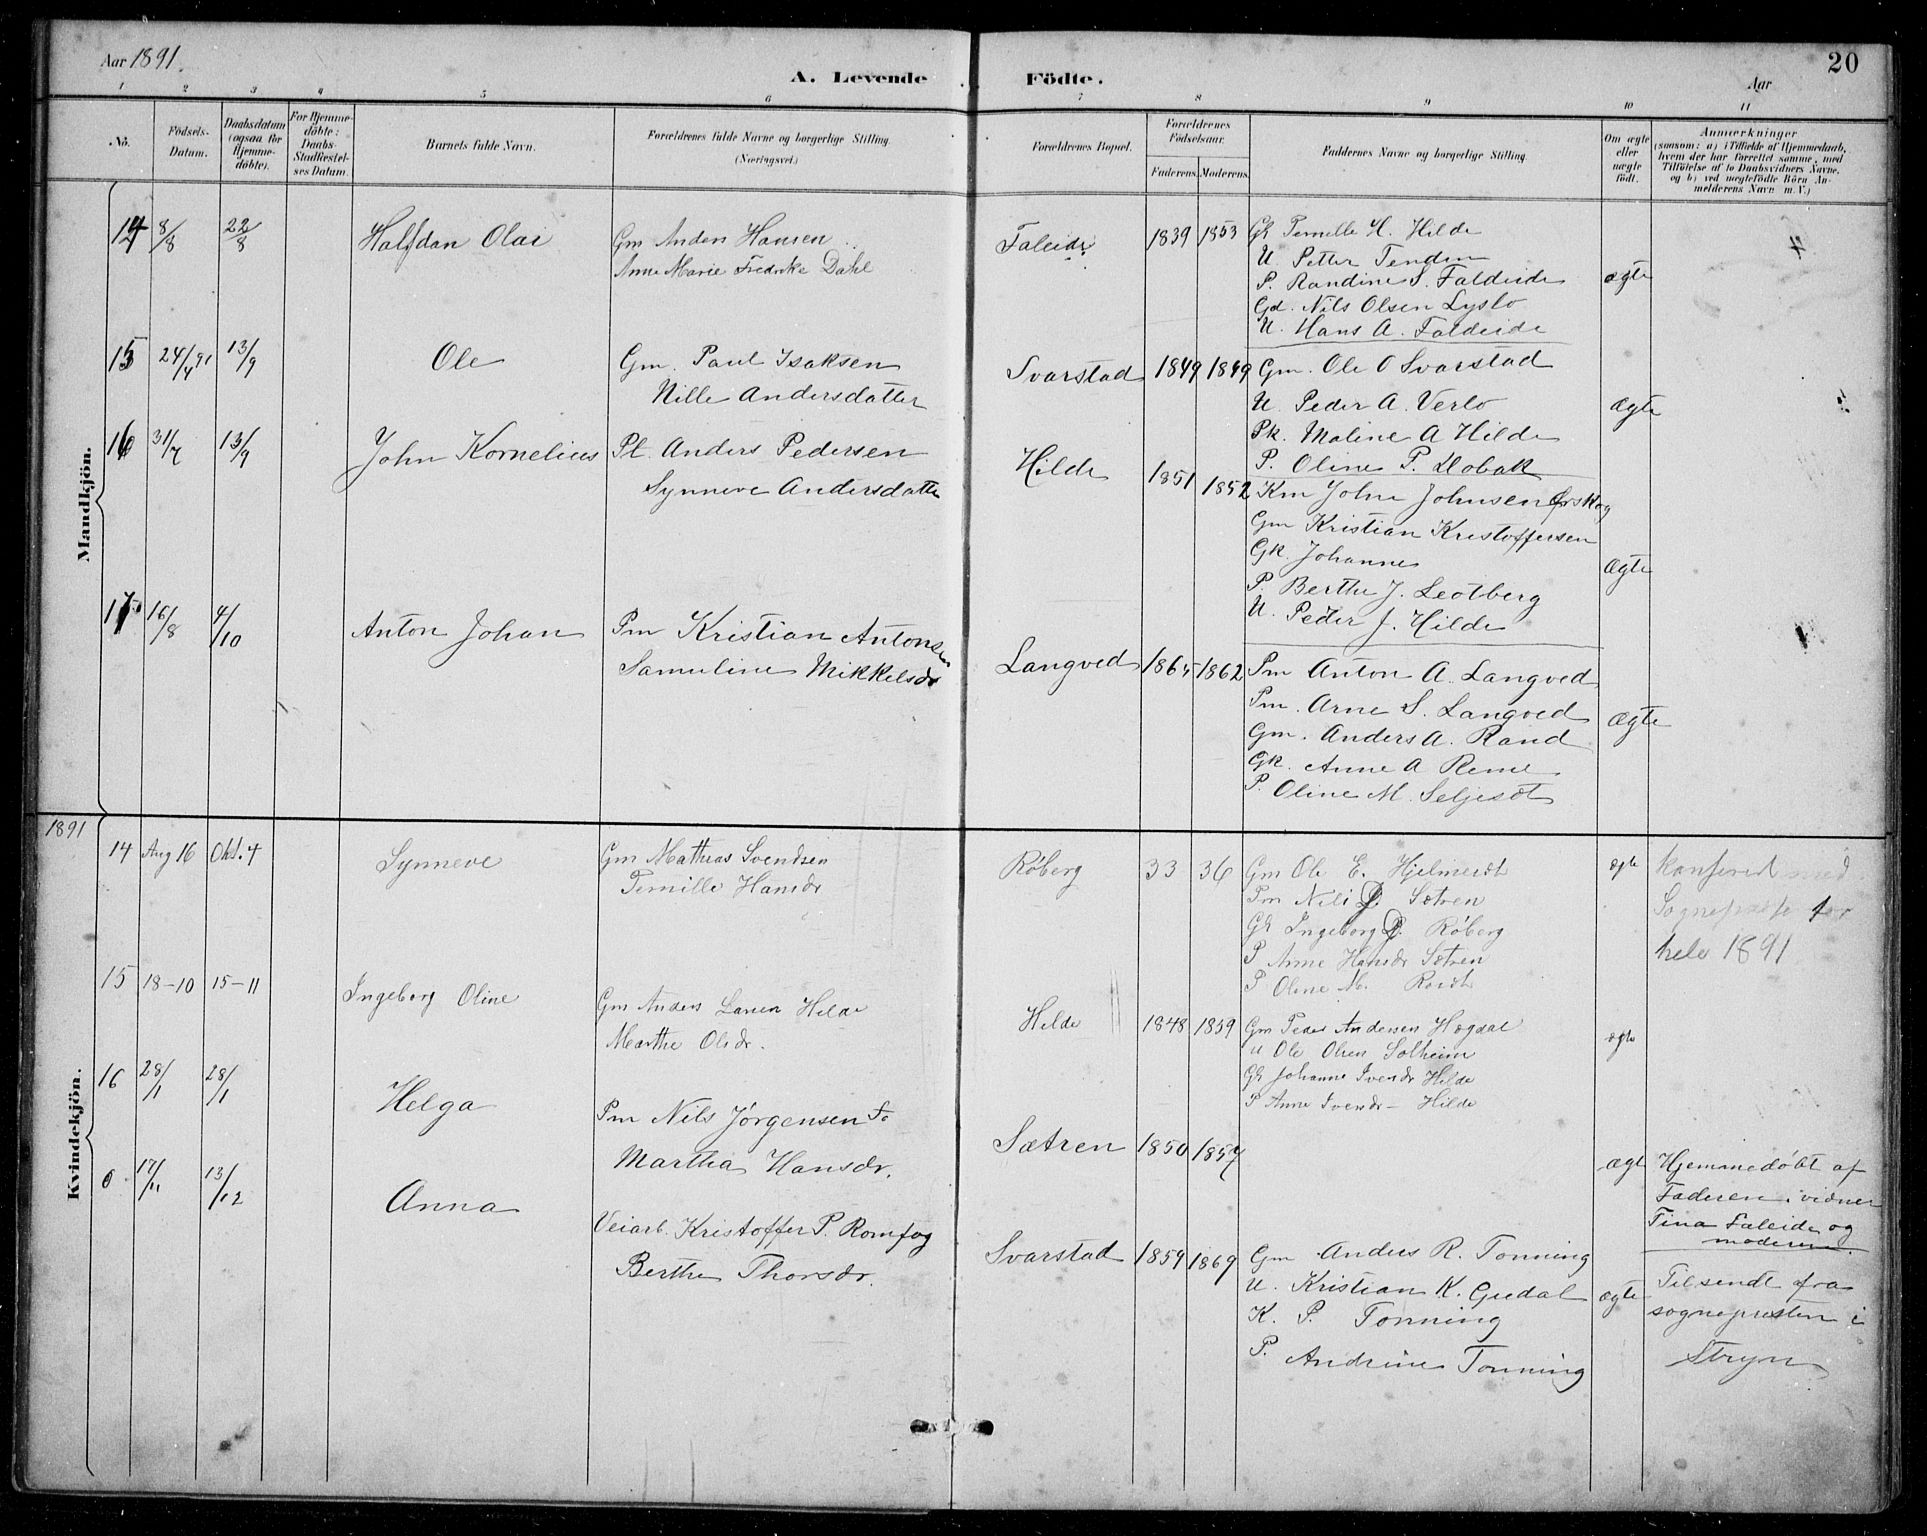 Aar 1891.
A. Levende Födte.
Aar
20
1 2 3 4 5 6 7 8 9 10 11
No.
Födsels-Datum.
Daabsdatum (ogsaa for Hjemmedöbte).
For Hjemmedöbte: Daabs-Stadfæstelses Datum.
Barnets fulde Navn.
Forældrenes fulde Navne og borgerlige Stilling. (Næringsvei.)
Forældrenes Bopæl.
Forældrenes Födselsaar.
Faderens. Moderens.
Faddernes Navne og borgerlige Stilling.
Om ægte eller uægte födt.
Anmærkninger
(saasom: a) i Tilfælde af Hjemmedaab, hvem der har forrettet samme, med Tilföielse af to Daabsvidners Navne, og b) ved uægtefödte Börn Anmelderens Navn m. V.)
Mandkjön.
14 8/8 22/8 Halfdan Olai
Gm Anders Hansen
Anne Marie Fredrike Dahl
Faleide 1839 1853
Gk Pernille H. Hilde
U. Petter Tenden
P. Randine S. Faldeide
Gd. Nils Olsen Lyslo
U. Hans A. Faldeide
ægte
15 24/4 91 13/9 Ole
Gm. Paul Isaksen
Nille Andersdatter
Svarstad 1849 1849
Gm. Ole O Svarstad
U. Peder A. Verlo
Pk. Maline A Hilde
P. Oline P. Hobak
ægte
16 31/7 13/9 John Kornelius
Pl. Anders Pedersen
Synneve Andersdatter
Hilde 1851 1852
Km John Johnsen Ørskog
Gm Kristian Kristoffersen
Gk. Johanne
P. Berthe J. Leotberg
U. Peder J. Hilde
ægte
17 16/8 4/10 Anton Johan
Pm Kristian Antonsen
Samuline Mikkelsdr
Langved 1865 1862
Pm Anton A. Langved
Pm. Arne S. Langved
Gm. Anders A. Rand
Gk. Anne A Reme
P. Oline M. Seljeset
ægte
1891
Kvindekjön.
14 Aug 16 Okt. 4 Synneve
Gm Mathias Svendsen
Pernille Hansdr
Röberg 33 36
Gm Ole E. Hjelmeset
Pm Nils P. Sætren
Gk Ingeborg P. Röberg
P Anne Hansdr Sætren
P Oline M.
ægte
konfereret med
Sognepræst for
hele 1891
15 18-10 15-11 Ingeborg Oline
Gm Anders Larsen Hilde
Marthe Olsdr.
Hilde 1848 1859
Gm Peder Andersen Hogdal
U Ole Olsen Solheim
Gk Johanne Svendr Hilde
P Anne Svendr- Hilde
ægte
16 28/1 28/1 Helga
Pm Nils Jörgensen
Martha Hansdr.
Sætren 1850 1857
ægt
Hjemmedöbt af
Faderen i vidner
Tina Faleide og
moderen.
0 17/11 13/12 Anna
Veiarb. Kristoffer P. Romfog
Berthe Thorsdr.
Svarstad 1859 1869
Gm Anders R. Tonning
U. Kristian K. Gredal
K. P. Tonning
P. Andrine Tonning
ægte
Tilsendt fra
sognepresten i
Stryn